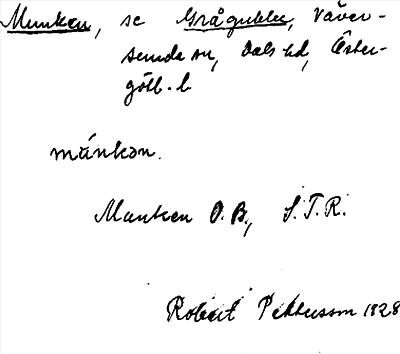 Munken, se Grågubbe, Väver-
sunda sn, Dals hd, Öster-
götl. l.
múnkən.
Munken O.B., S.T.R.
Robert Pettersson 1928